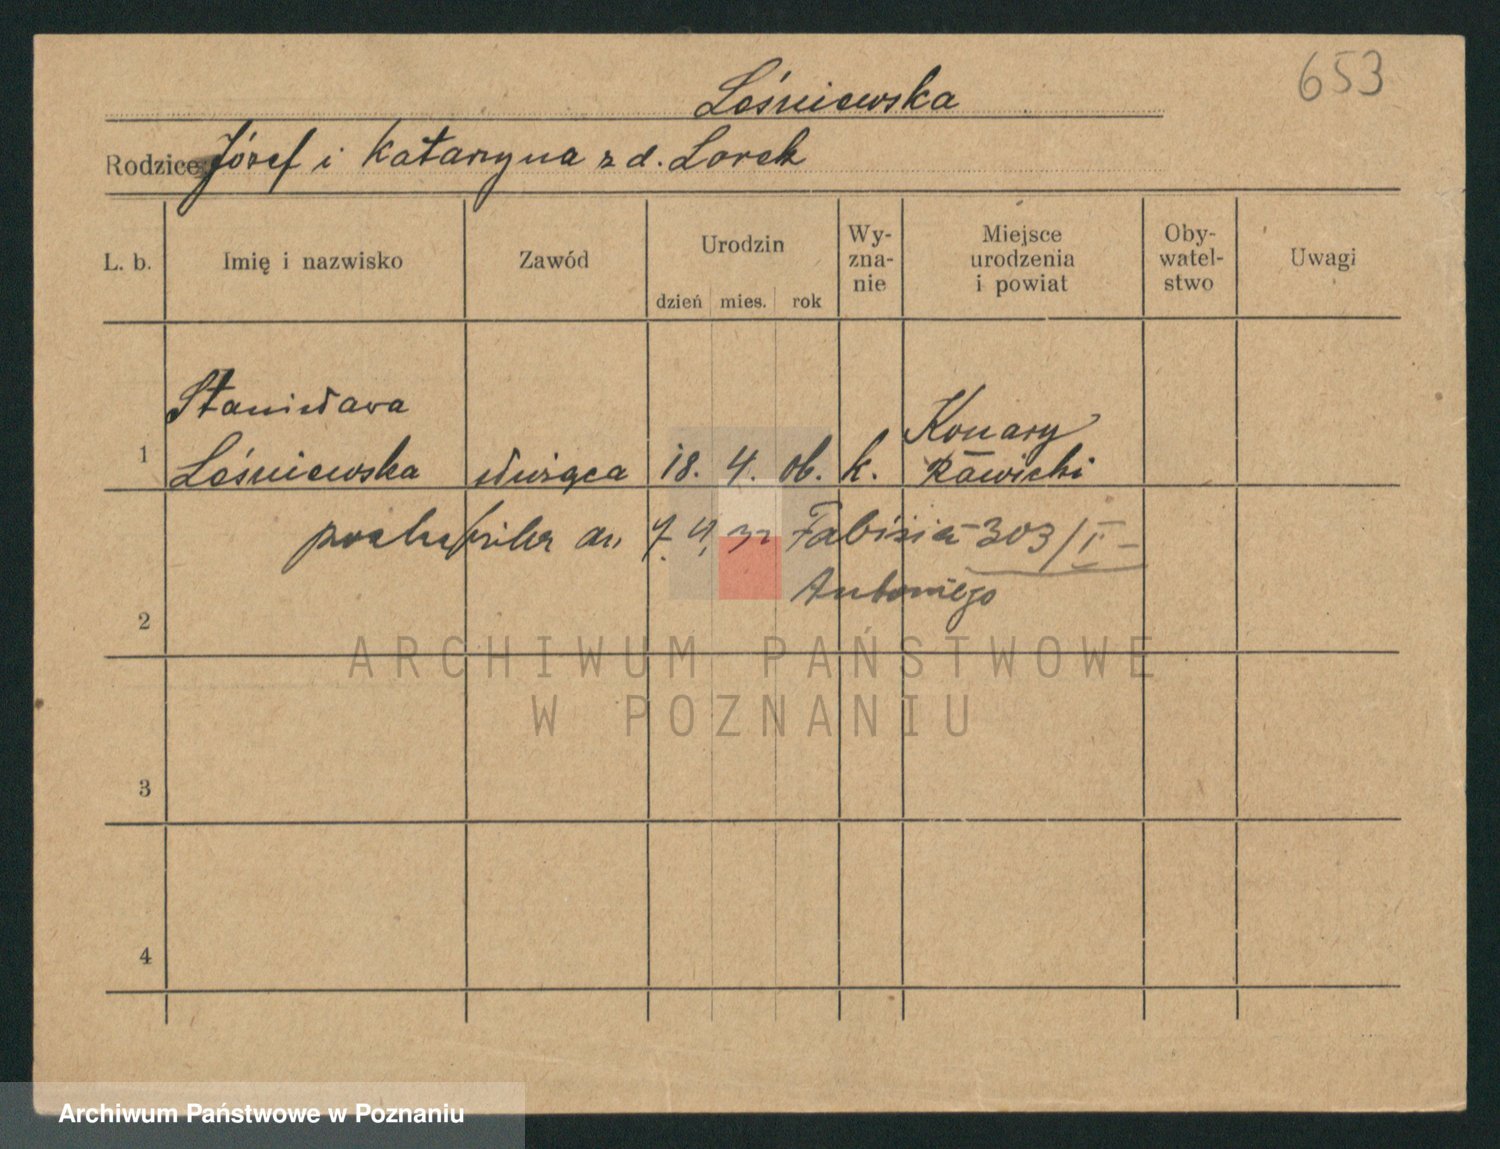 653
Leśniewska
Rodzice: Józef i Katarzyna z d. Lorek
L. b. Imię i nazwisko Zawód Urodzin dzień mies. rok Wyznanie Miejsce urodzenia i powiat Obywatelstwo Uwagi
Stanisława Konary
1 Leśniewska służąca 18. 4. 06. k. Rawicki
7. 4. 32 Fabisiak 303/I
Antoniego
2
ARCHIWUM PAŃSTWOWE
W POZNANIU
3
4
Archiwum Państwowe w Poznaniu